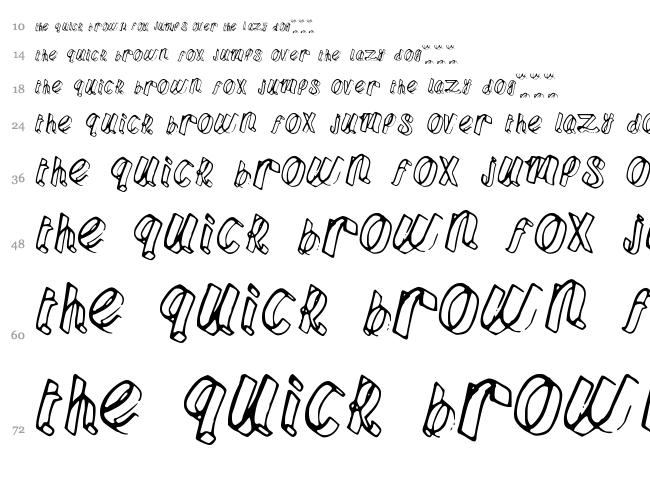 10 the quick brown fox jumps over the lazy dog
14 the quick brown fox jumps over the lazy dog
18 the quick brown fox jumps over the lazy dog
24 the quick brown fox jumps over the lazy do
36 the quick brown fox jumps o
48 the quick brown fox ju
60 the quick brown f
72 the quick brown